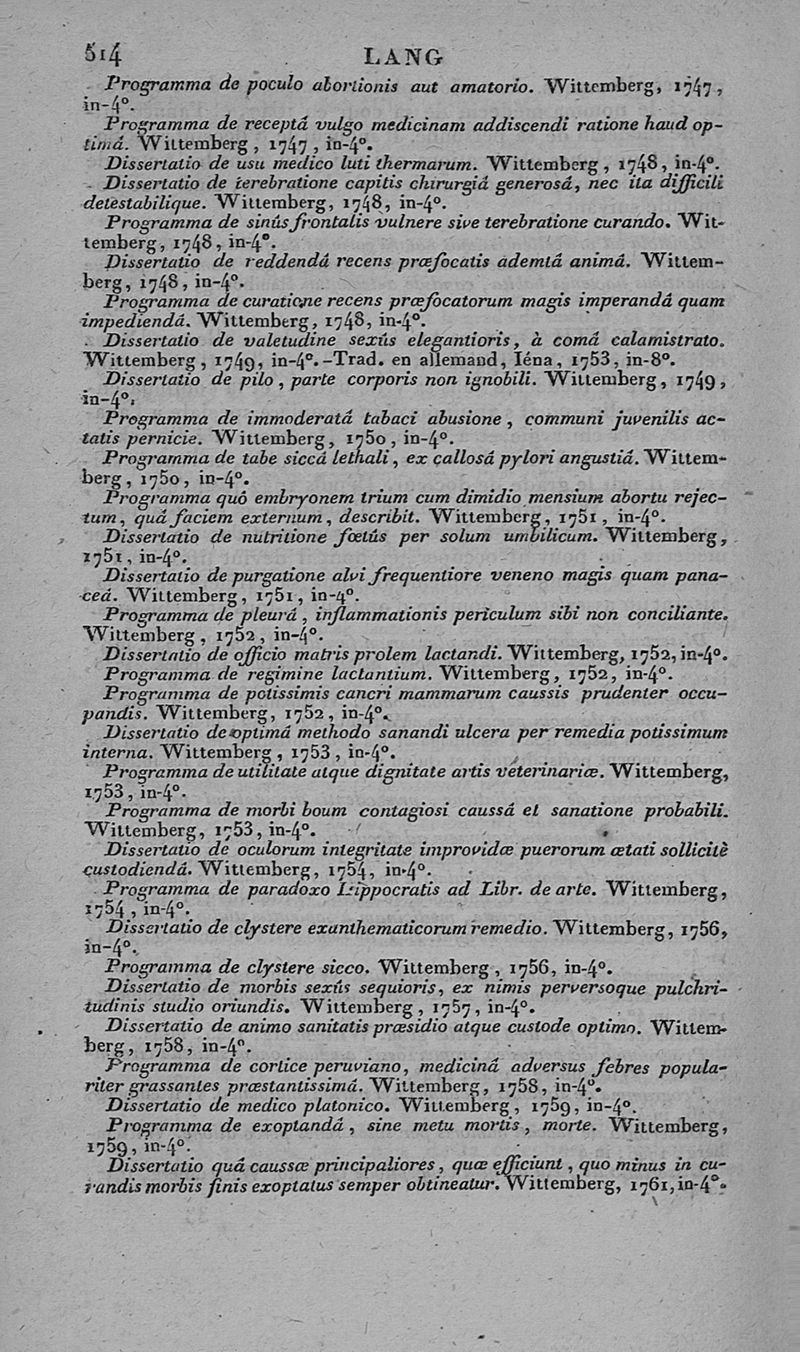 514 LANG
Programma de poculo abortionis aut amatorio. Wittemberg, 1747,
in-4°.
Programma de receptâ vulgo medicinam addiscendi ratione haud op-
timâ. Wittemberg, 1747, in-4°.
Dissertatio de usu medico luti thermarum. Wittemberg, 1748, in-4°.
Dissertatio de terebratione capitis chirurgiâ generosâ, nec ita difficili
detestabilique. Wittemberg, 1748, in-4°.
Programma de sinûs frontalis vulnere sive terebratione curando. Wit-
temberg, 1748, in-4°.
Dissertatio de reddendâ recens præfocatis ademtâ animâ. Wittem-
berg, 1748, in-4°.
Programma de curatione recens præfocatorum magis imperandâ quam
impediendâ. Wittemberg, 1748, in-4°.
Dissertatio de valetudine sexûs elegantioris, à comâ calamistrato.
Wittemberg, 1749, in-4°.-Trad. en allemand, Iéna, 1753, in-8°.
Dissertatio de pilo, parte corporis non ignobili. Wittemberg, 1749,
in-4°.
Programma de immoderatâ tabaci abusione, communi juvenilis æ-
tatis pernicie. Wittemberg, 1750, in-4°.
Programma de tabe siccâ lethali, ex callosâ pylori angustiâ. Wittem-
berg, 1750, in-4°.
Programma quô embryonem trium cum dimidio mensium abortu rejec-
tum, quâ faciem externum, describit. Wittemberg, 1751, in-4°.
Dissertatio de nutritione fœtûs per solum umbilicum. Wittemberg,
1751, in-4°.
Dissertatio de purgatione alvi frequentiore veneno magis quam pana-
ceâ. Wittemberg, 1751, in-4°.
Programma de pleurâ, inflammationis periculum sibi non conciliante.
Wittemberg, 1752, in-4°.
Dissertatio de officio matris prolem lactandi. Wittemberg, 1752, in-4°.
Programma de regimine lactantium. Wittemberg, 1752, in-4°.
Programma de potissimis cancri mammarum caussis prudenter occu-
pandis. Wittemberg, 1752, in-4°.
Dissertatio de optimâ methodo sanandi ulcera per remedia potissimum
interna. Wittemberg, 1753, in-4°.
Programma de utilitate atque dignitate artis veterinariæ. Wittemberg,
1753, in-4°.
Programma de morbi boum contagiosi caussâ et sanatione probabili.
Wittemberg, 1753, in-4°.
Dissertatio de oculorum integritate improvidæ puerorum ætati sollicitè
custodiendâ. Wittemberg, 1754, in-4°.
Programma de paradoxo Hippocratis ad Libr. de arte. Wittemberg,
1754, in-4°.
Dissertatio de clystere exanthematicorum remedio. Wittemberg, 1756,
in-4°.
Programma de clystere sicco. Wittemberg, 1756, in-4°.
Dissertatio de morbis sexûs sequioris, ex nimis perversoque pulchri-
tudinis studio oriundis. Wittemberg, 1757, in-4°.
Dissertatio de animo sanitatis præsidio atque custode optimo. Wittem-
berg, 1758, in-4°.
Programma de cortice peruviano, medicinâ adversus febres popula-
riter grassantes præstantissimâ. Wittemberg, 1758, in-4°.
Dissertatio de medico platonico. Wittemberg, 1759, in-4°.
Programma de exoptandâ, sine metu mortis, morte. Wittemberg,
1759, in-4°.
Dissertatio quâ caussæ principaliores, quæ efficiunt, quo minus in cu-
randis morbis finis exoptatus semper obtineatur. Wittemberg, 1761, in-4°.